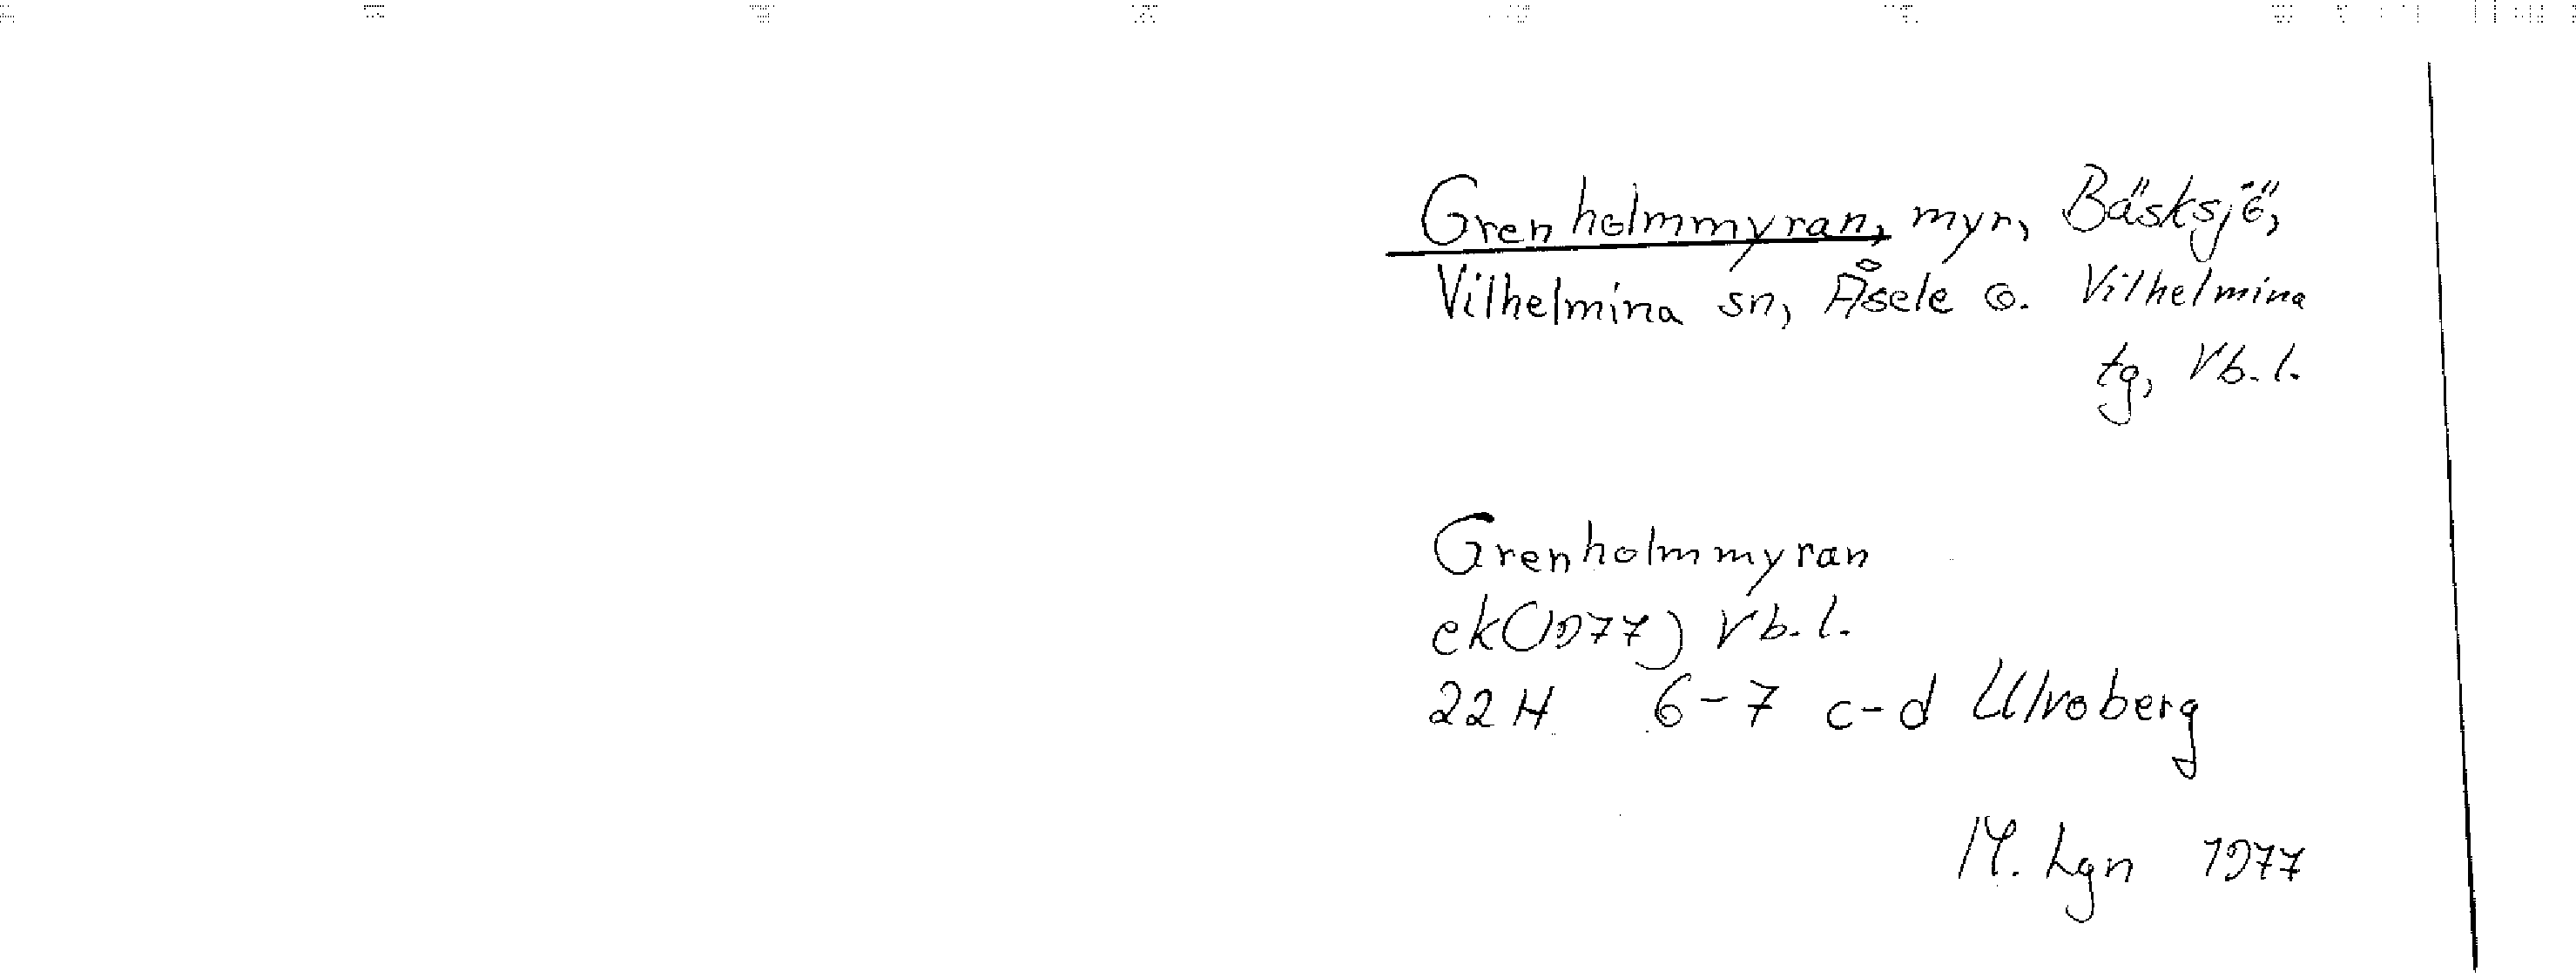 Grenholmmyran, myr, Bäsksjö,
Vilhelmina sn, Åsele o. Vilhelmina
tg, Vb.l.
Grenholmmyran
ek(1977) Vb.l.
22H 6-7 c-d Ulvoberg
M. Lgn 1977